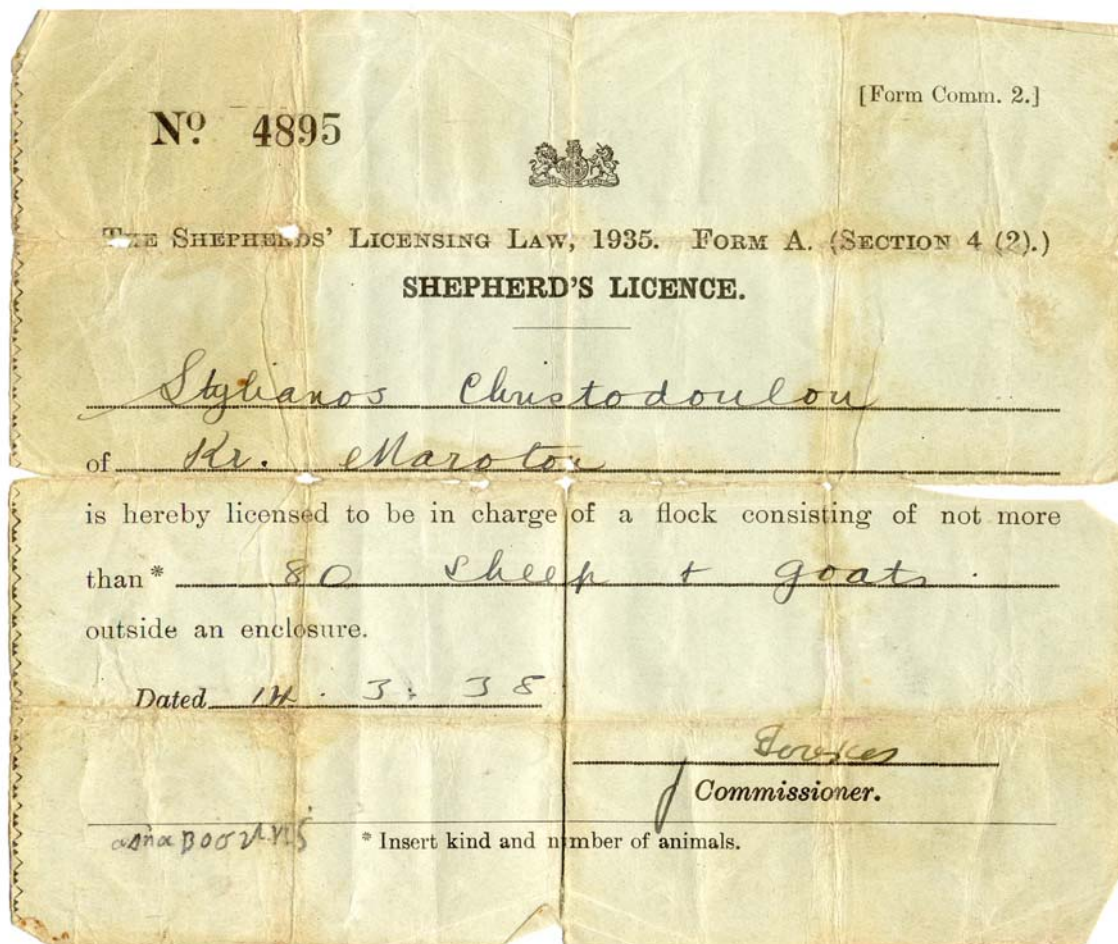 [Form Comm. 2.]
Nº 4895
THE SHEPHERDS' LICENSING LAW, 1935. FORM A. (SECTION 4 (2).)
SHEPHERD'S LICENCE.
Stylianos Christodoulou
of Kr. Marotou
is hereby licensed to be in charge of a flock consisting of not more
than * 80 sheep + goats.
outside an enclosure.
Dated 14. 3. 38
Commissioner.
* Insert kind and number of animals.